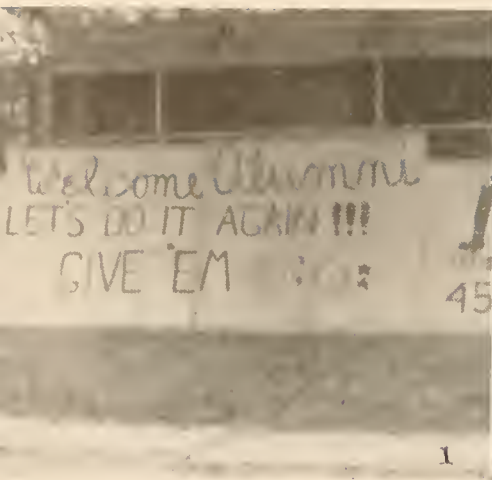 Welcome Alumni
LET'S DO IT AGAIN!!!
GIVE 'EM
45
1